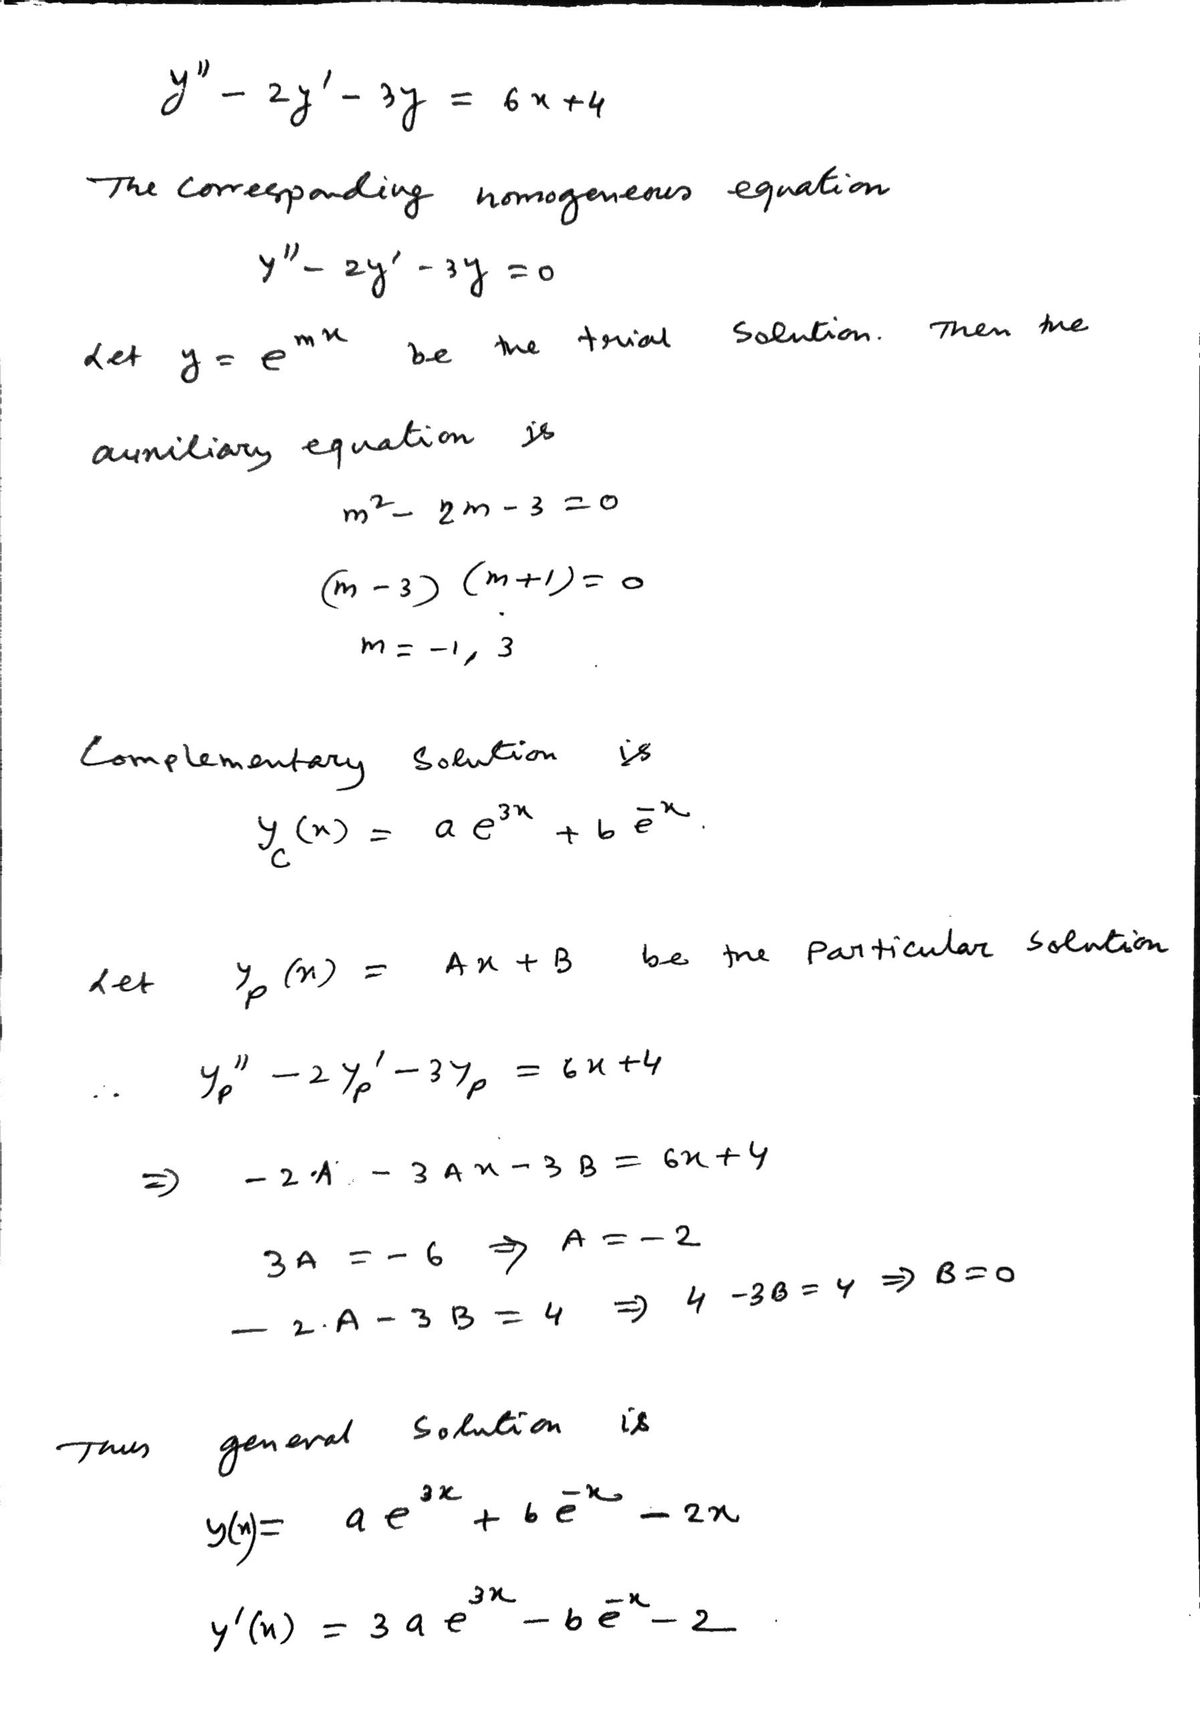 y'' - 2y' - 3y = 6x + 4
The corresponding homogeneous equation
y'' - 2y' - 3y = 0
Let y = e^{mx} be the trial solution. Then the
auxiliary equation is
m² - 2m - 3 = 0
(m - 3) (m + 1) = 0
m = -1, 3
Complementary solution is
y_c(x) = a e^{3x} + b e^{-x}.
Let y_p(x) = Ax + B be the particular solution
∴ y_p'' - 2y_p' - 3y_p = 6x + 4
⇒ - 2·A - 3Ax - 3B = 6x + 4
3A = -6 ⇒ A = -2
- 2·A - 3B = 4 ⇒ 4 - 3B = 4 ⇒ B = 0
Thus general solution is
y(x) = a e^{3x} + b e^{-x} - 2x
y'(x) = 3a e^{3x} - b e^{-x} - 2